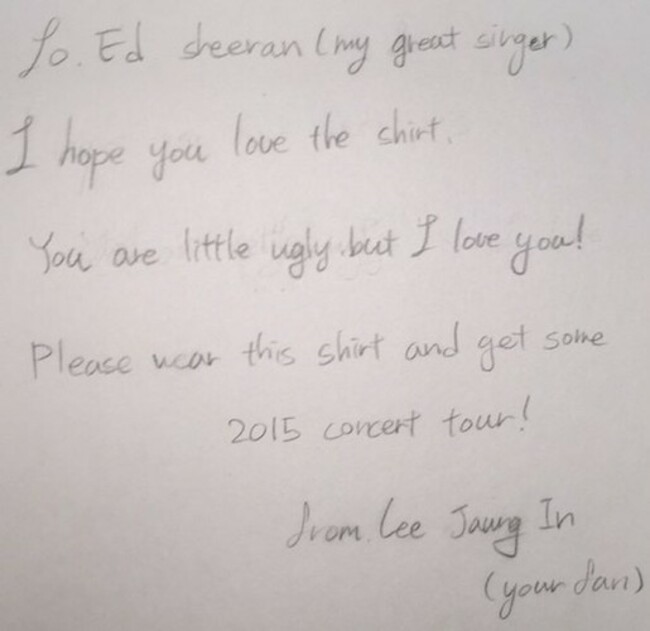 To. Ed sheeran (my great singer)
I hope you love the shirt.
You are little ugly. but I love you!
Please wear this shirt and get some
2015 concert tour!
from. Lee Jaung In
(your fan)